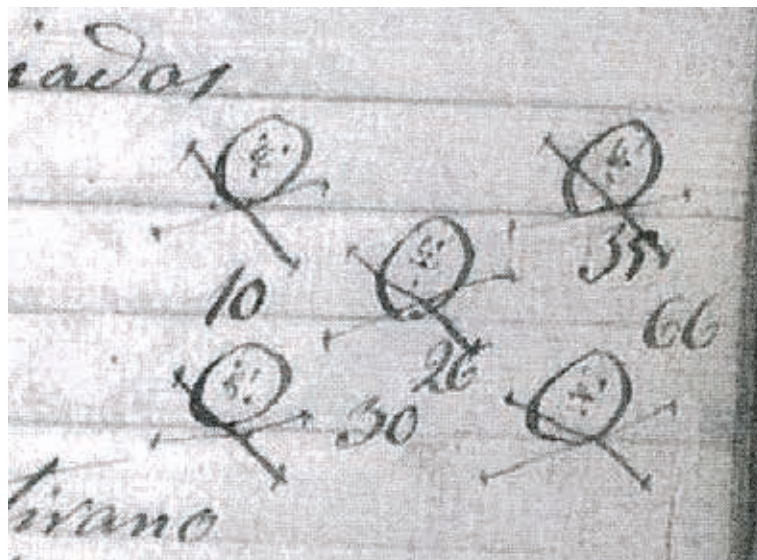 iados
10
35
66
26
30
tirano